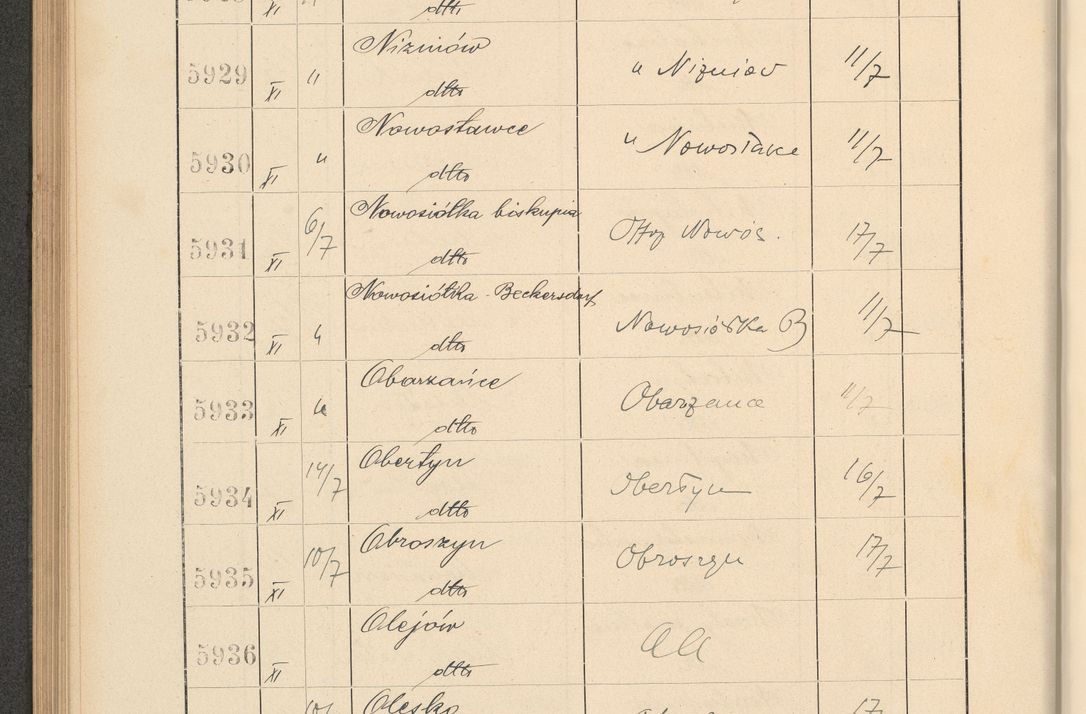 dtto
Nizniów
5929 XI " dtto " Nizniow 11/7
Nowostawce
5930 XI " dtto " Nowostawce 11/7
Nowosiółka biskupia
5931 XI 6/7 dtto Nowos. 17/7
Nowosiółka Beckersdorf
5932 XI " dtto Nowosiółka B 11/7
Obarzańce
5933 XI " dtto Obarzance 11/7
Obertyn
5934 XI 14/7 dtto Obertyn 16/7
Obroszyn
5935 XI 10/7 dtto Obroszyn 17/7
Olejów
5936 XI dtto
Olesko